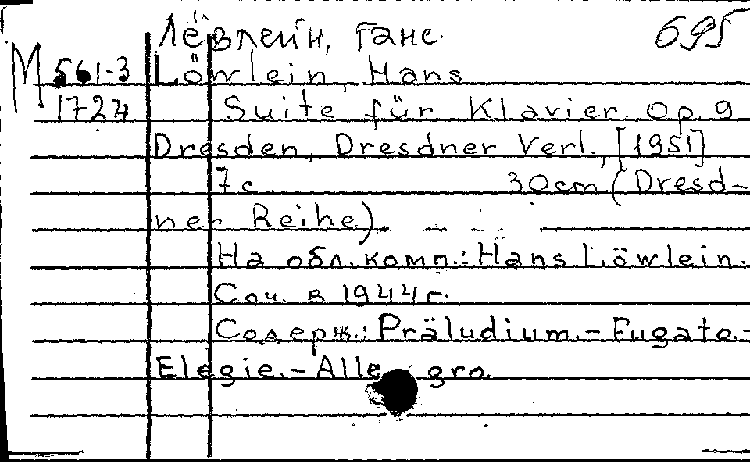 Лёвлейн, Ганс.
695
М 561-3
1724
Löwlein, Hans
Suite für Klavier. Op. 9
Dresden, Dresdner Verl., [1951]
7 с 30cm (Dresd-
ner Reihe).
На обл. комп.: Hans Löwlein.
Соч. в 1944 г.
Содерж.: Präludium.-Fugato.-
Elegie.-Allegro.